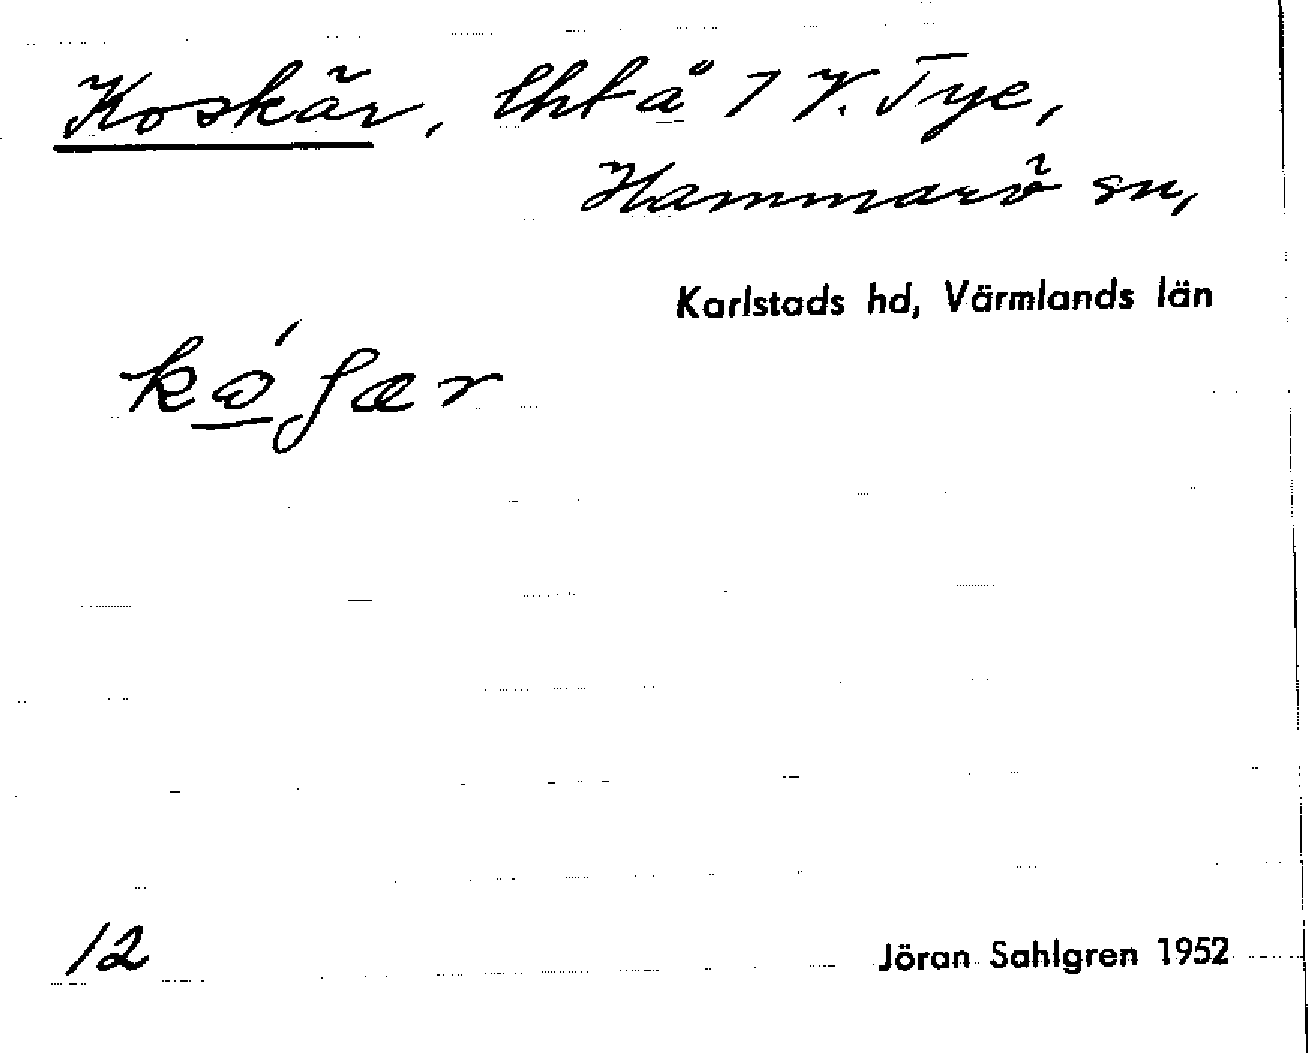 Koskär, lht å 1 V. Tye,
Hammarö sn,
Karlstads hd, Värmlands län
12
Jöran Sahlgren 1952